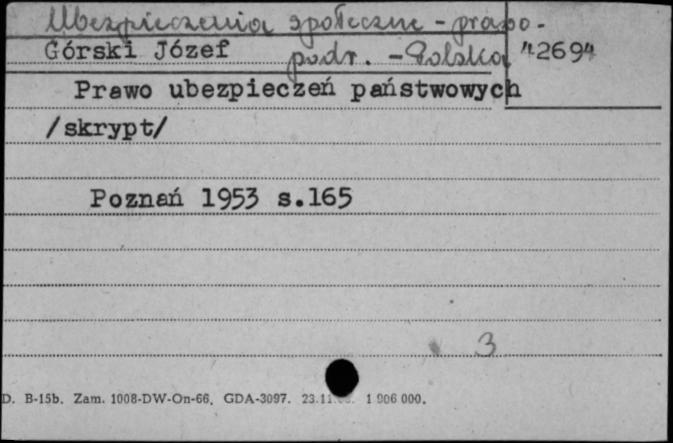 Ubezpieczenia społeczne - prawo -
Górski Józef podr. - Polska "42694
Prawo ubezpieczeń państwowych
/skrypt/
Poznań 1953 s.165
3
D. B-15b. Zam. 1008-DW-On-66. GDA-3097. 23.11 1 906 000.